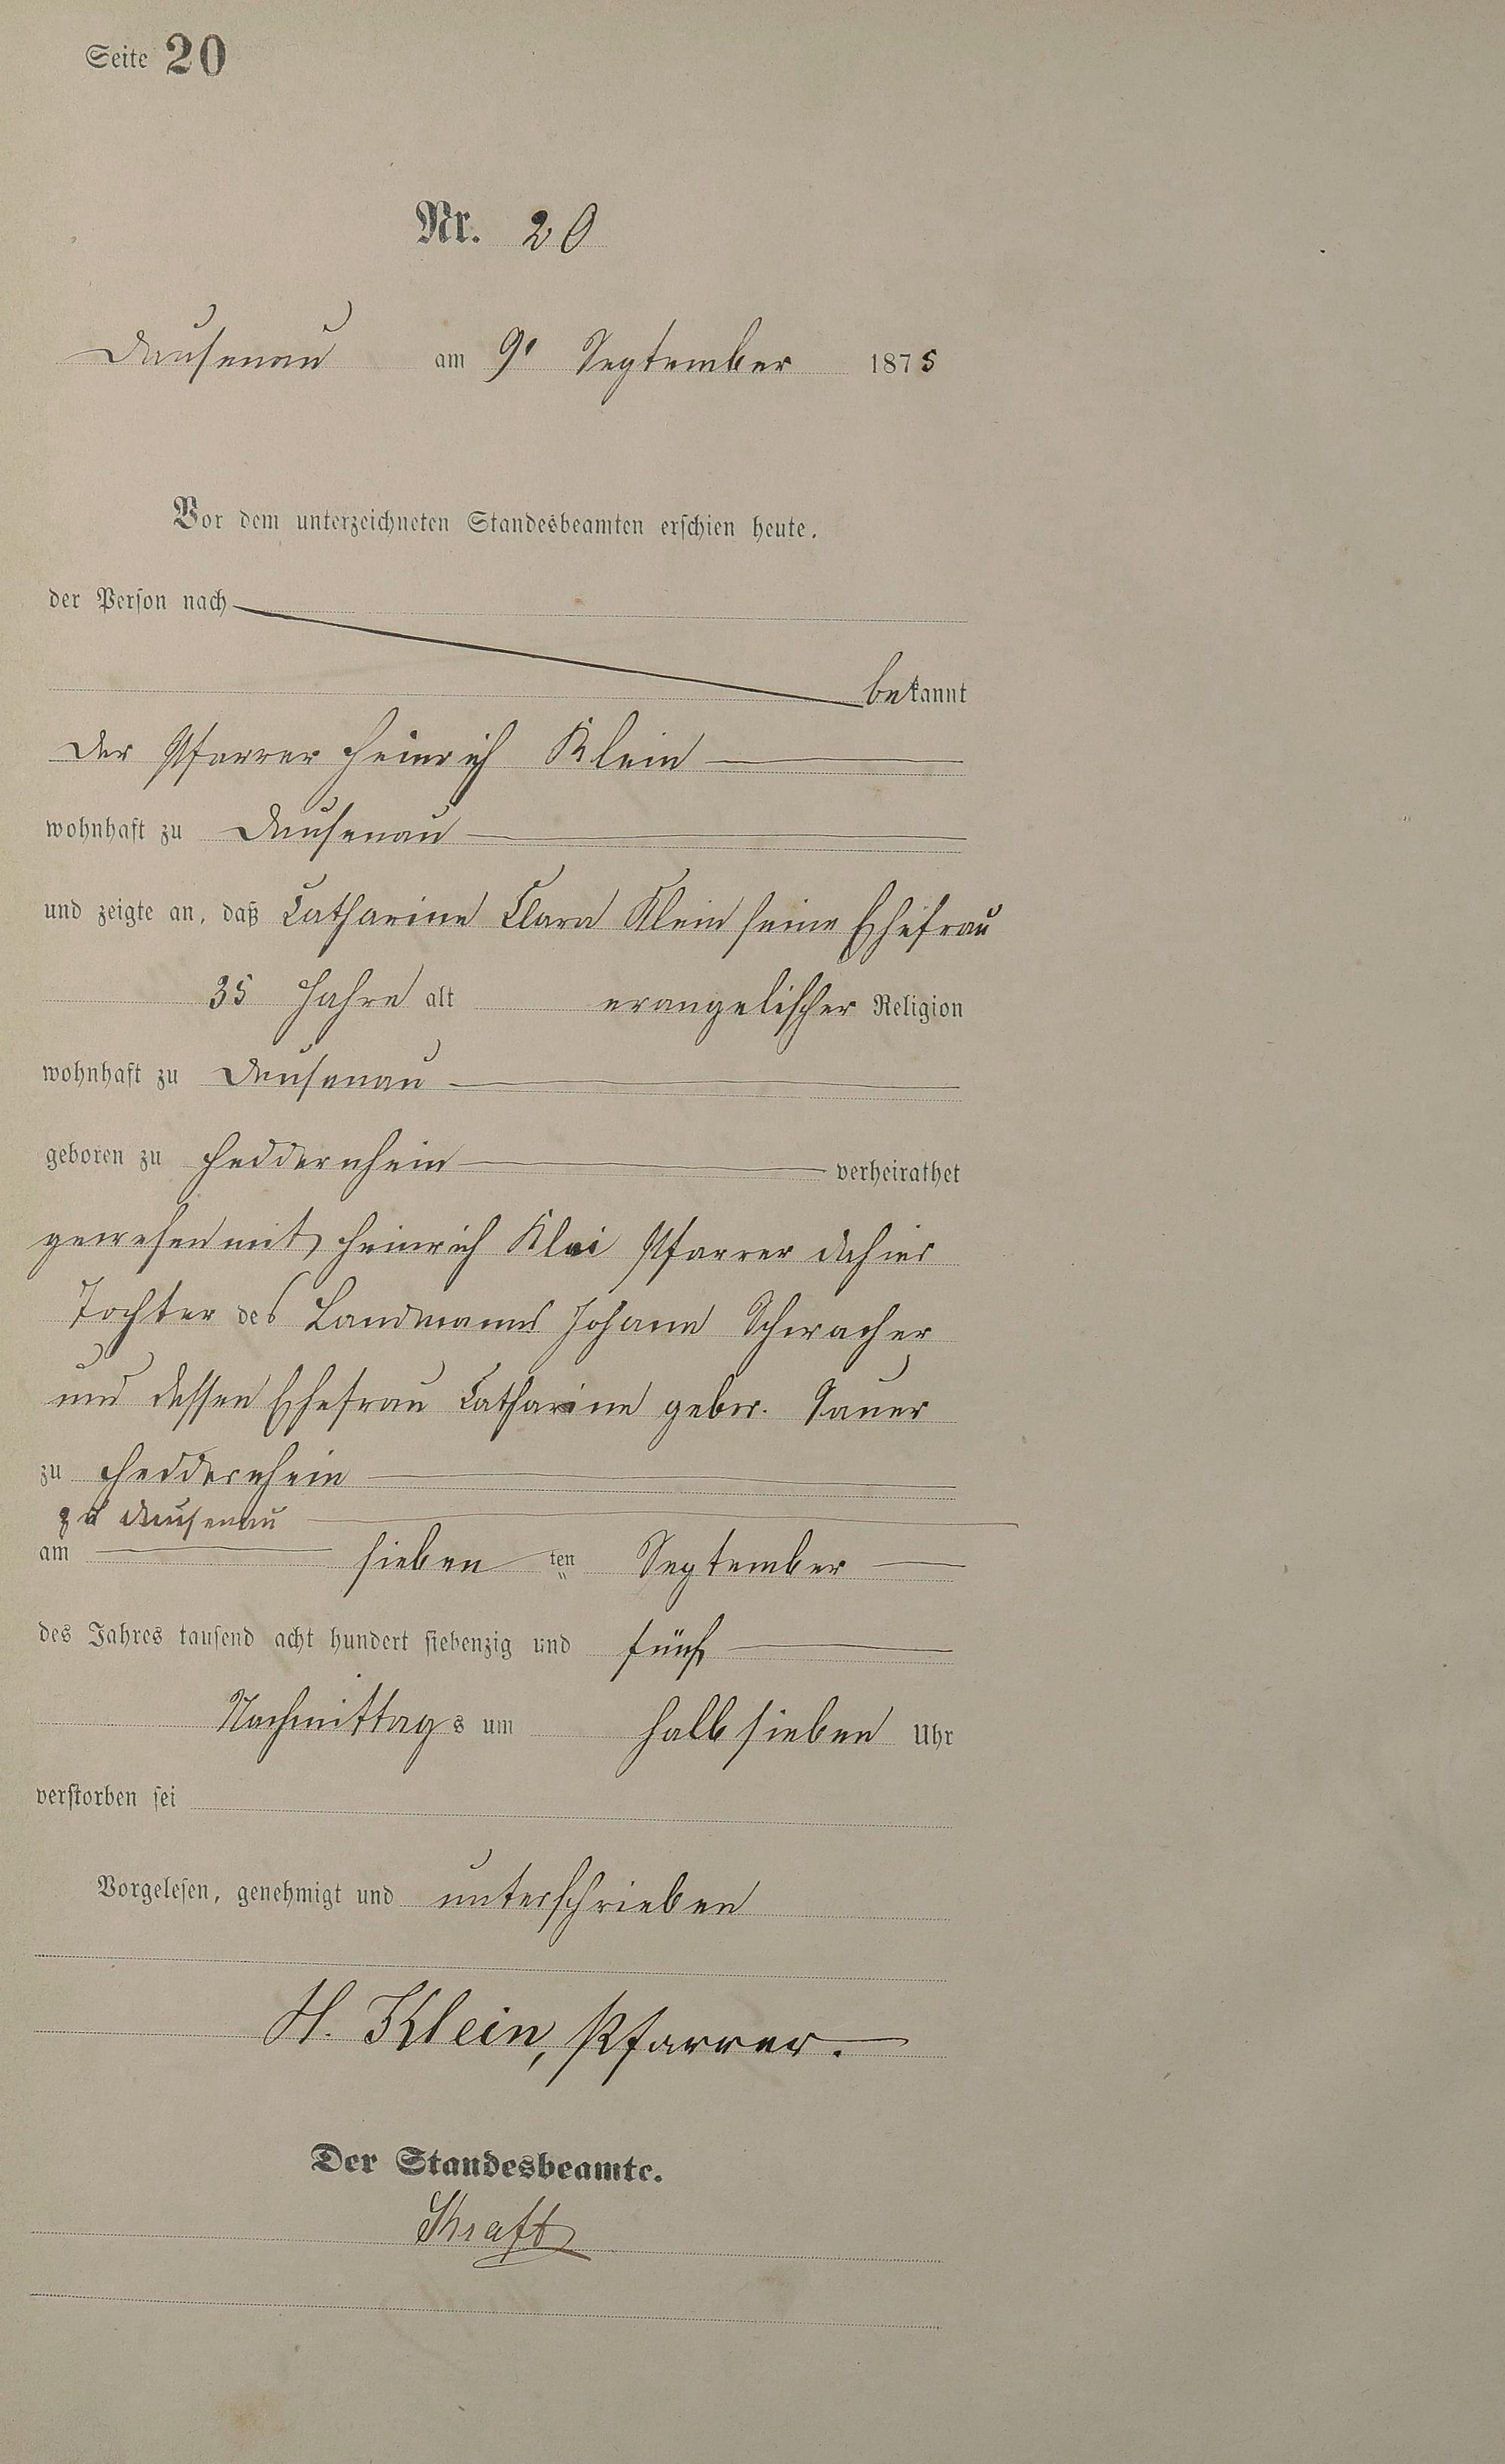 Seite 20
Nr. 20
Dausenau am 9' September 1875
Vor dem unterzeichneten Standesbeamten erschien heute.
der Person nach
bekannt
der Pfarrer Heinrich Klein
wohnhaft zu Dausenau
und zeigte an, daß Catharine Clara Klein seine Ehefrau
35 Jahre alt evangelischer Religion
wohnhaft zu Dausenau
geboren zu Heddernheim verheirathet
gewesen mit Heinrich Klei Pfarrer dahier
Tochter des Landmanns Johann Schwacher
und dessen Ehefrau Catharine gebor. Sauer
zu Heddernheim
zu Dausenau
am sieben ten September
des Jahres tausend acht hundert siebenzig und fünf
Nachmittags um halb sieben Uhr
verstorben sei
Vorgelesen, genehmigt und unterschrieben
H. Klein, Pfarrer.
Der Standesbeamte.
Kraft